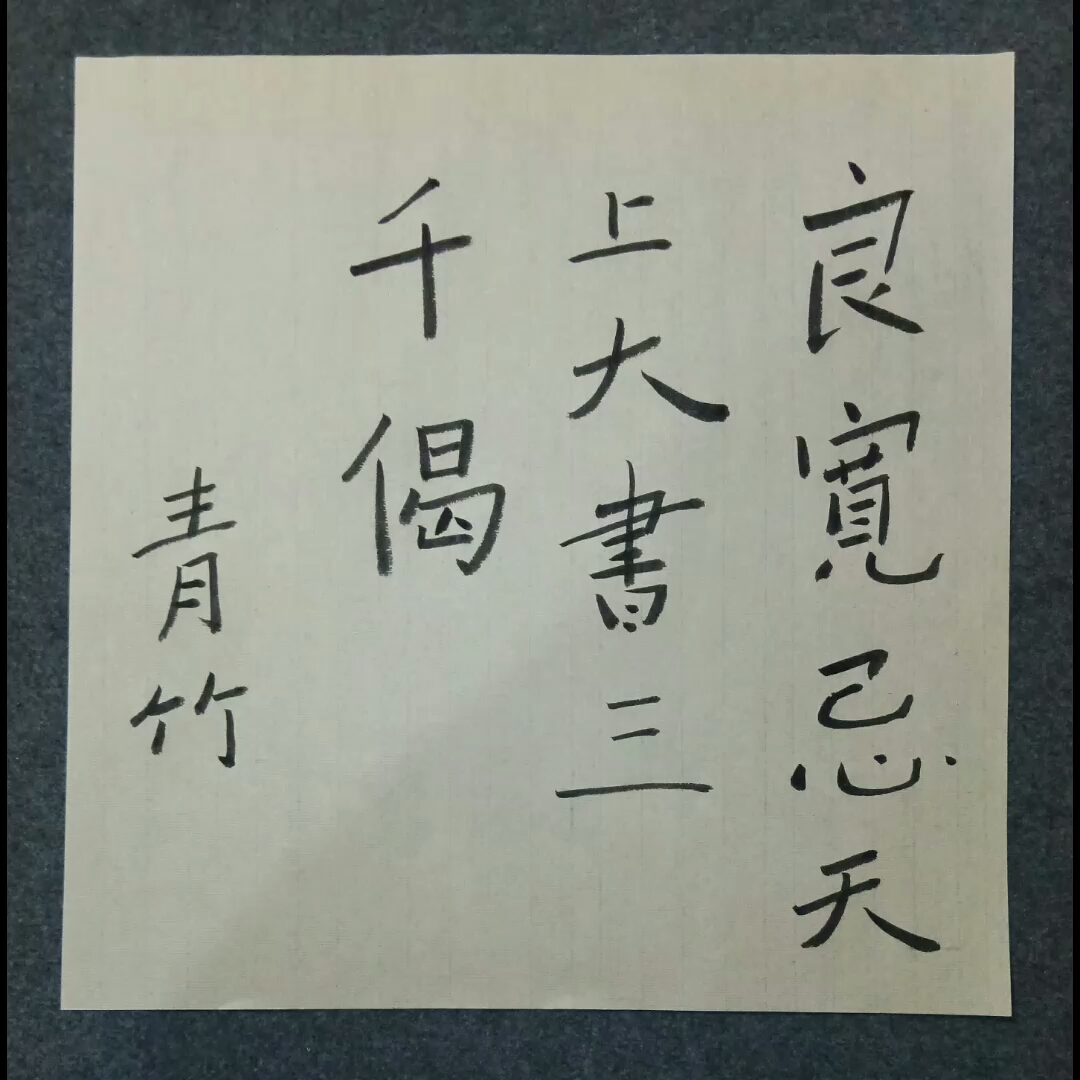 良寛忌天
上大書三
千偈
青竹